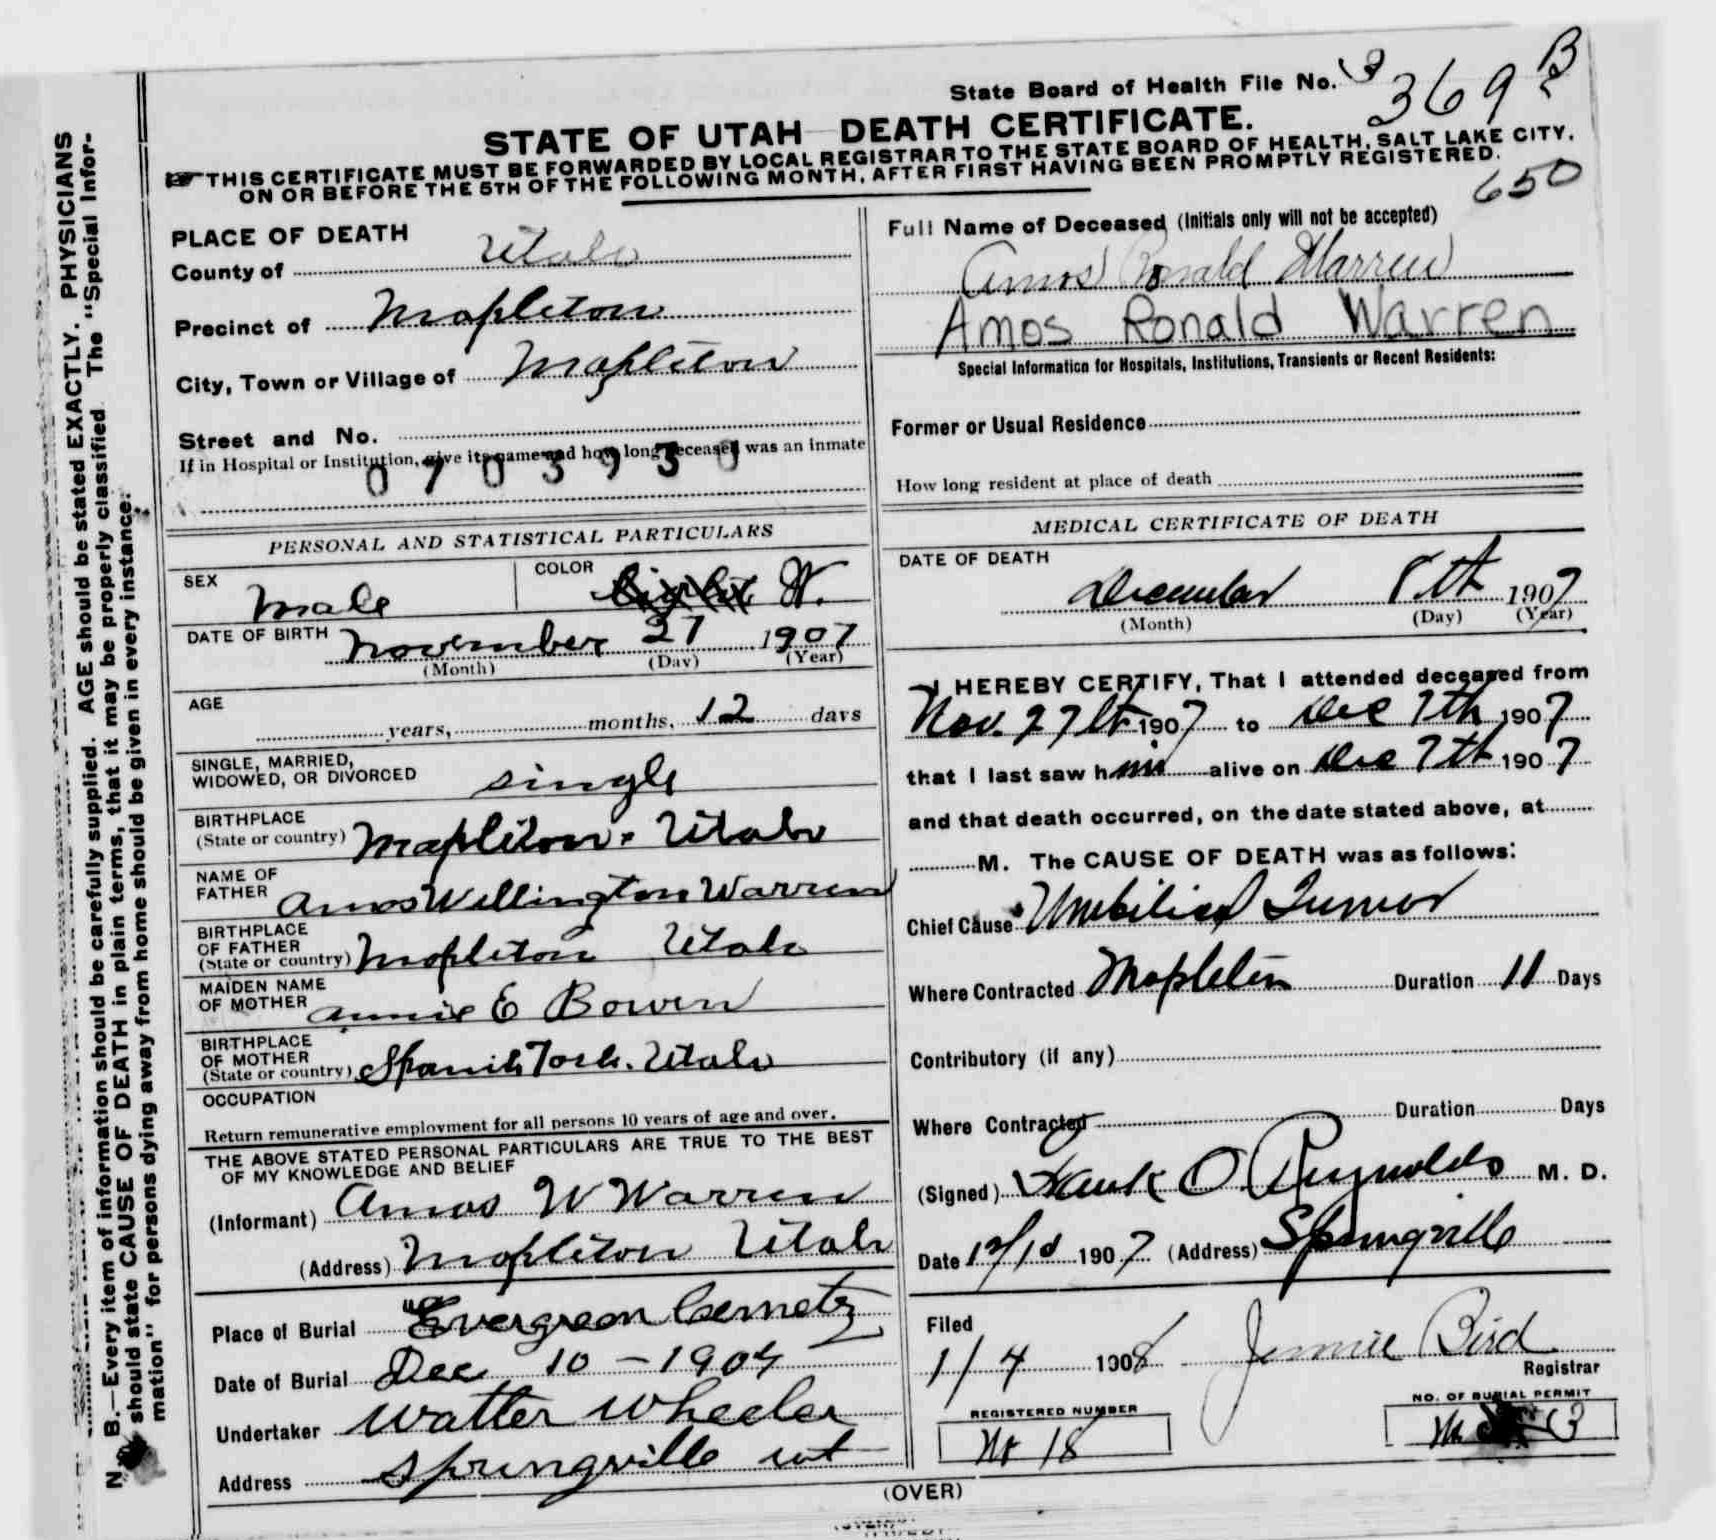 State Board of Health File No. 3 369 B
STATE OF UTAH—DEATH CERTIFICATE.
THIS CERTIFICATE MUST BE FORWARDED BY LOCAL REGISTRAR TO THE STATE BOARD OF HEALTH, SALT LAKE CITY,
ON OR BEFORE THE 5TH OF THE FOLLOWING MONTH, AFTER FIRST HAVING BEEN PROMPTLY REGISTERED.
650
PLACE OF DEATH
County of Utah
Precinct of Mapleton
City, Town or Village of Mapleton
Street and No.
If in Hospital or Institution, give its name and how long deceased was an inmate
PERSONAL AND STATISTICAL PARTICULARS
SEX Male
COLOR W.
DATE OF BIRTH November 27 1907
(Month) (Day) (Year)
AGE
years, months, 12 days
SINGLE, MARRIED,
WIDOWED, OR DIVORCED single
BIRTHPLACE
(State or country) Mapleton, Utah
NAME OF
FATHER Amos Wellington Warren
BIRTHPLACE
OF FATHER
(State or country) Mapleton Utah
MAIDEN NAME
OF MOTHER Annie E Bowen
BIRTHPLACE
OF MOTHER
(State or country) Spanish Fork. Utah
OCCUPATION
Return remunerative employment for all persons 10 years of age and over.
THE ABOVE STATED PERSONAL PARTICULARS ARE TRUE TO THE BEST
OF MY KNOWLEDGE AND BELIEF
(Informant) Amos W Warren
(Address) Mapleton Utah
Place of Burial Evergreen Cemetry
Date of Burial Dec 10 - 1907
Undertaker Walter Wheeler
Address Springville ut
Full Name of Deceased (Initials only will not be accepted)
Amos Ronald Warren
Amos Ronald Warren
Special Information for Hospitals, Institutions, Transients or Recent Residents:
Former or Usual Residence
How long resident at place of death
MEDICAL CERTIFICATE OF DEATH
DATE OF DEATH
December 8th 1907
(Month) (Day) (Year)
I HEREBY CERTIFY, That I attended deceased from
Nov. 27th 1907 to Dec 7th 1907
that I last saw him alive on Dec 7th 1907
and that death occurred, on the date stated above, at
M. The CAUSE OF DEATH was as follows:
Chief Cause Umbilical Tumor
Where Contracted Mapleton Duration 11 Days
Contributory (if any)
Where Contracted Duration Days
(Signed) Frank O. Reynolds M. D.
Date 1907 (Address) Springville
Filed
1/4 1908 Jennie Bird
Registrar
REGISTERED NUMBER
No 18
NO. OF BURIAL PERMIT
(OVER)
N. B.—Every item of information should be carefully supplied. AGE should be stated EXACTLY. PHYSICIANS
should state CAUSE OF DEATH in plain terms, that it may be properly classified. The "Special Infor-
mation" for persons dying away from home should be given in every instance.